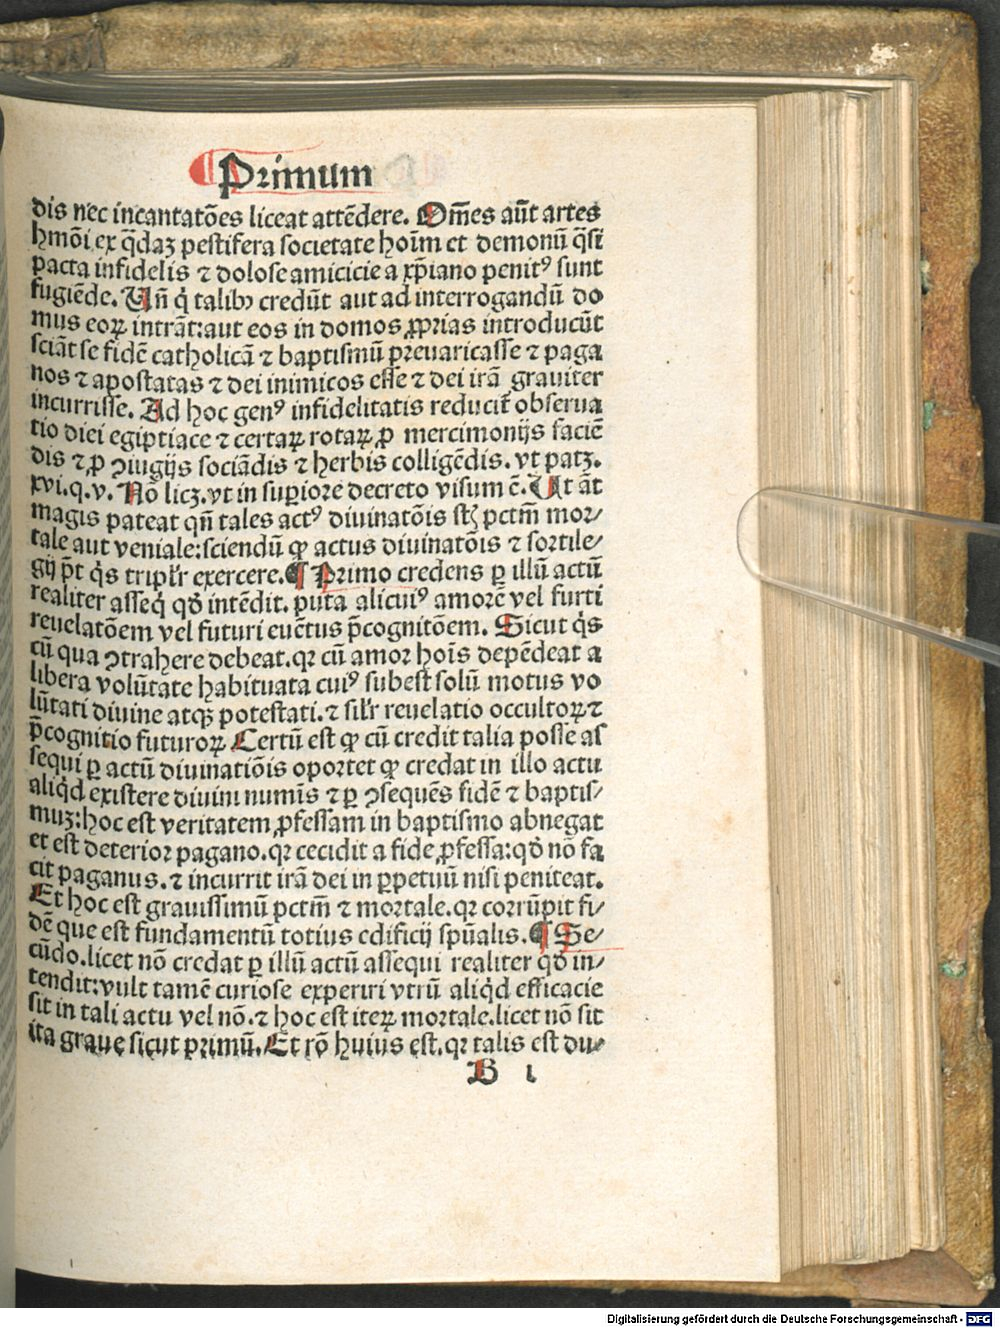 Primum
dis nec incantatões liceat attẽdere. Om̃es aũt artes
hmõi ex q̃daꝫ pestifera societate hoĩm et demonũ q̃si
pacta infidelis ⁊ dolose amicicie a xp̃iano penitꝰ sunt
fugiẽde. Un̄ qͥ talibꝫ credũt aut ad interrogandũ do
mus eoꝝ intrãt: aut eos in domos ꝓprias introducũt
sciãt se fidẽ catholicã ⁊ baptismũ preuaricasse ⁊ paga
nos ⁊ apostatas ⁊ dei inimicos esse ⁊ dei irã grauiter
incurrisse. Ad hoc genꝰ infidelitatis reducit̃ obserua
tio diei egiptiace ⁊ certaꝝ rotaꝝ ꝓ mercimonijs faciẽ
dis ⁊ ꝓ ↄiugijs sociãdis ⁊ herbis colligẽdis. vt patꝫ.
xvi.q.v. Nõ licꝫ. vt in superiore decreto visum ẽ. Ut aũt
magis pateat qñ tales actꝰ diuinatõis sꝉt pctm̃ mor/
tale aut veniale: sciendũ ꝙ actus diuinatõis ⁊ sortile/
gij p̃t qͥs tripl'r exercere. ¶ Primo credens ꝑ illũ actũ
realiter asseqͥ qd̃ intẽdit. puta alicuiꝰ amorẽ vel furti
reuelatõem vel futuri euẽtus p̃cognitõem. Sicut qͥs
cũ qua ↄtrahere debeat. qꝛ cũ amor hoĩs depẽdeat a
libera volũtate habituata cuiꝰ subest solũ motus vo
lũtati diuine atqꝫ potestati. ⁊ sil'r reuelatio occultoꝝ ⁊
p̃cognitio futuroꝝ Certũ est ꝙ cũ credit talia posse as
sequi ꝑ actũ diuinatiõis oportet ꝙ credat in illo actu
aliqͥd existere diuini numĩs ⁊ ꝑ ↄsequẽs fidẽ ⁊ baptis/
muꝫ: hoc est veritatem ꝓfessam in baptismo abnegat
et est deterior pagano. qꝛ cecidit a fide ꝓfessa: qd̃ nõ fa
cit paganus. ⁊ incurrit irã dei in ꝑpetuũ nisi peniteat.
Et hoc est grauissimũ pctm̃ ⁊ mortale. qꝛ corrũpit fi/
dẽ que est fundamentũ totius edificij spũalis. ¶ Se/
cũdo. licet nõ credat ꝑ illũ actũ assequi realiter qd̃ in/
tendit: vult tamẽ curiose experiri vtrũ aliqͥd efficacie
sit in tali actu vel nõ. ⁊ hoc est iteꝝ mortale. licet nõ sit
ita graue sicut primũ. Et rõ huius est. qꝛ talis est du/
B 1
Digitalisierung gefördert durch die Deutsche Forschungsgemeinschaft - DFG